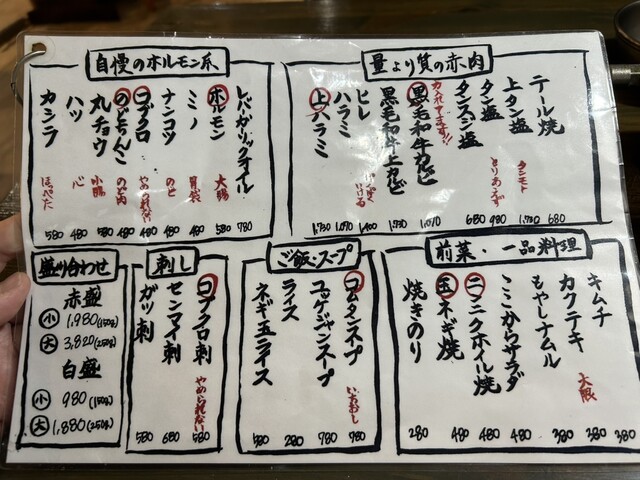 量より質の赤肉
テール焼
680
上タン塩
タンモト
1,730
タン塩
とりあえず
480
タンスジ塩
680
黒毛和牛カルビ
力入れてます!!
1,070
黒毛和牛上カルビ
1,730
ヒレ
1,400
ハラミ
1,090
上ハラミ
1,730
自慢のホルモン系
レバガーリックオイル
780
ホルモン
大腸
580
ミノ
胃袋
480
ナンコツ
のど
480
コブクロ
やめられない
480
のどちんこ
のど肉
480
丸チョウ
小腸
580
ハツ
心
480
カシラ
ほっぺた
580
前菜・一品料理
キムチ
380
カクテキ
大根
380
もやしナムル
380
ここからサラダ
480
ニンニクホイル焼
480
玉ネギ焼
480
焼きのり
280
ご飯・スープ
コムタンスープ
いちおし
980
ユッケジャンスープ
780
ライス
280
ネギ玉ライス
580
刺し
コブクロ刺
やめられない
580
センマイ刺
680
ガツ刺
580
盛り合わせ
赤盛
小 1,980(150g)
大 3,820(250g)
白盛
小 980(150g)
大 1,880(250g)